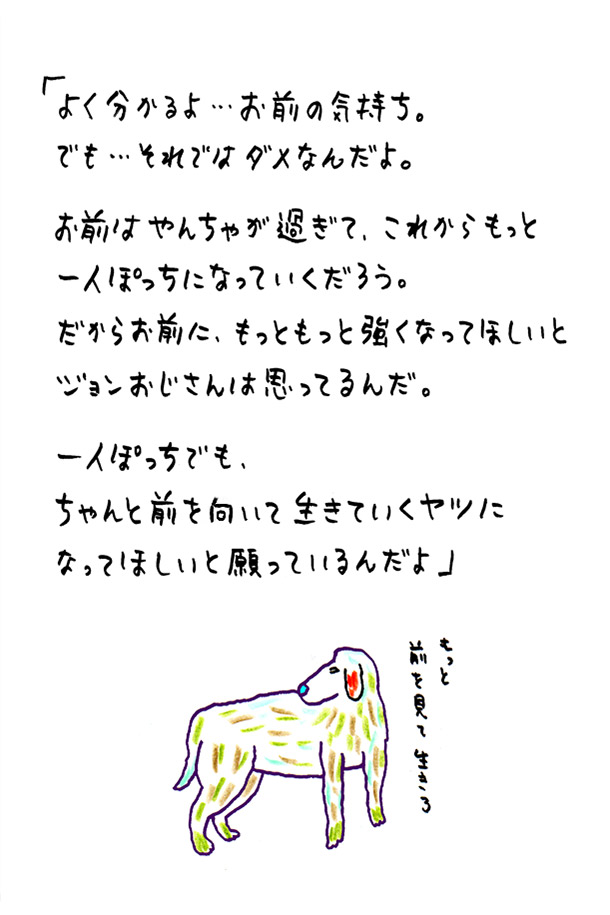 「よく分かるよ…お前の気持ち。
でも…それではダメなんだよ。
お前はやんちゃが過ぎて、これからもっと
一人ぽっちになっていくだろう。
だからお前に、もっともっと強くなってほしいと
ジョンおじさんは思ってるんだ。
一人ぽっちでも、
ちゃんと前を向いて生きていくヤツに
なってほしいと願っているんだよ」
もっと
前を見て生きろ